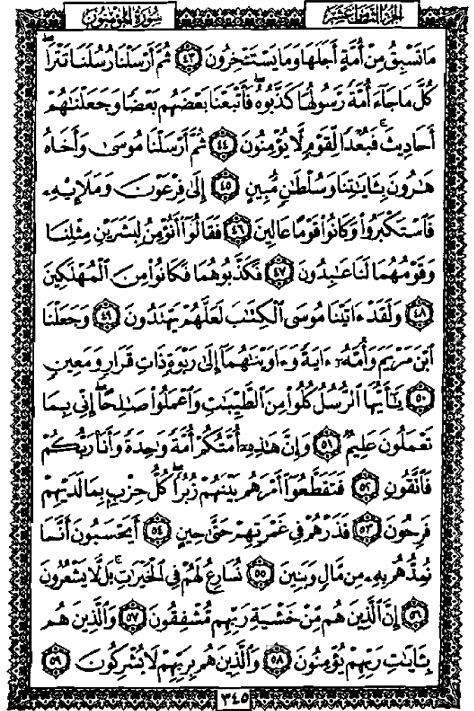 سُورَةُ المُؤْمِنُونَ
الجُزْءُ الثَّامِنَ عَشَرَ
مَا تَسْبِقُ مِنْ أُمَّةٍ أَجَلَهَا وَمَا يَسْتَـْٔخِرُونَ ٤٣ ثُمَّ أَرْسَلْنَا رُسُلَنَا تَتْرَاۖ
كُلَّ مَا جَآءَ أُمَّةً رَّسُولُهَا كَذَّبُوهُۖ فَأَتْبَعْنَا بَعْضَهُم بَعْضًا وَجَعَلْنَٰهُمْ
أَحَادِيثَۚ فَبُعْدًا لِّقَوْمٍ لَّا يُؤْمِنُونَ ٤٤ ثُمَّ أَرْسَلْنَا مُوسَىٰ وَأَخَاهُ
هَٰرُونَ بِـَٔايَٰتِنَا وَسُلْطَٰنٍ مُّبِينٍ ٤٥ إِلَىٰ فِرْعَوْنَ وَمَلَإِي۟هِۦ
فَٱسْتَكْبَرُوا۟ وَكَانُوا۟ قَوْمًا عَالِينَ ٤٦ فَقَالُوٓا۟ أَنُؤْمِنُ لِبَشَرَيْنِ مِثْلِنَا
وَقَوْمُهُمَا لَنَا عَٰبِدُونَ ٤٧ فَكَذَّبُوهُمَا فَكَانُوا۟ مِنَ ٱلْمُهْلَكِينَ
٤٨ وَلَقَدْ ءَاتَيْنَا مُوسَى ٱلْكِتَٰبَ لَعَلَّهُمْ يَهْتَدُونَ ٤٩ وَجَعَلْنَا
ٱبْنَ مَرْيَمَ وَأُمَّهُۥٓ ءَايَةً وَءَاوَيْنَٰهُمَآ إِلَىٰ رَبْوَةٍ ذَاتِ قَرَارٍ وَمَعِينٍ
٥٠ يَٰٓأَيُّهَا ٱلرُّسُلُ كُلُوا۟ مِنَ ٱلطَّيِّبَٰتِ وَٱعْمَلُوا۟ صَٰلِحًاۖ إِنِّى بِمَا
تَعْمَلُونَ عَلِيمٌ ٥١ وَإِنَّ هَٰذِهِۦٓ أُمَّتُكُمْ أُمَّةً وَٰحِدَةً وَأَنَا۠ رَبُّكُمْ
فَٱتَّقُونِ ٥٢ فَتَقَطَّعُوٓا۟ أَمْرَهُم بَيْنَهُمْ زُبُرًاۖ كُلُّ حِزْبٍۭ بِمَا لَدَيْهِمْ
فَرِحُونَ ٥٣ فَذَرْهُمْ فِى غَمْرَتِهِمْ حَتَّىٰ حِينٍ ٥٤ أَيَحْسَبُونَ أَنَّمَا
نُمِدُّهُم بِهِۦ مِن مَّالٍ وَبَنِينَ ٥٥ نُسَارِعُ لَهُمْ فِى ٱلْخَيْرَٰتِۚ بَل لَّا يَشْعُرُونَ
٥٦ إِنَّ ٱلَّذِينَ هُم مِّنْ خَشْيَةِ رَبِّهِم مُّشْفِقُونَ ٥٧ وَٱلَّذِينَ هُم
بِـَٔايَٰتِ رَبِّهِمْ يُؤْمِنُونَ ٥٨ وَٱلَّذِينَ هُم بِرَبِّهِمْ لَا يُشْرِكُونَ ٥٩
٣٤٥